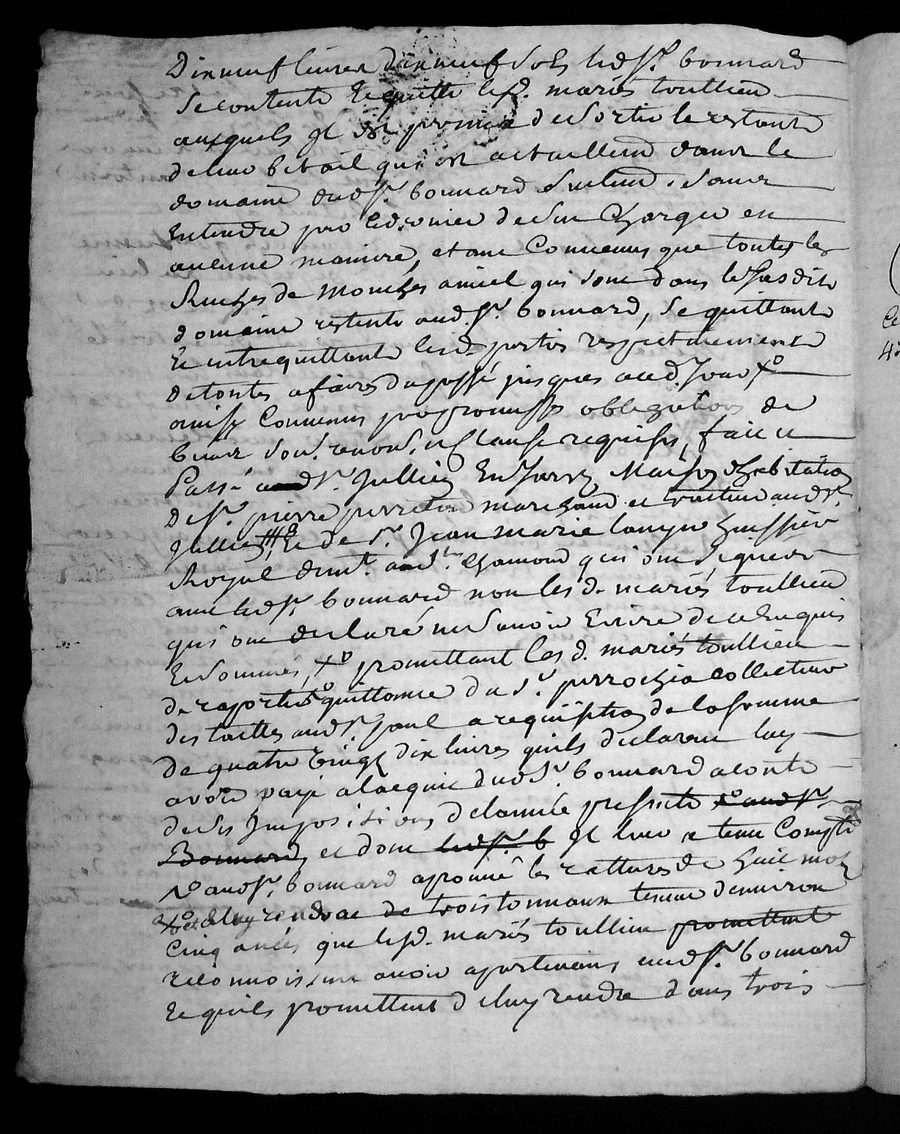 Dixneuf livres dixneuf sols led. Sr. bonnard
se contente et quitte lesd. mariés toullieu
auxquels il est permis de sortir le restant
de leur betail qui est actuellem dans le
domaine dud. Sr. bonnard sans
entendre par ce dernier de son charger en
aucune maniere, et ont Convenus que toutes les
Ruches de Mouches a miel qui sont dans le susdit
domaine restent aud. Sr. bonnard, se quittant
et entrequittant lesd. parties respectivement
de toutes afaires du passé jusques aud. jour xo
ainsy Convenus par promesses obligations de
biens soub. renons. et clause requises, fait et
Passé aud. St. Jullien En Jarrez Maison d'habitation
de Sr. pierre marchand et aud. St.
Jullien et de Sr. Jean marie huissier
Royal demt. a St. Chamond qui ont signé
avec led. Sr. bonnard non lesd. mariés toullieu
qui ont declaré ne savoir Ecrire de ce Enquis
Et sommés, xo promettant lesd. mariés toullieu
de raporter quittance du Sr. perrochia collecteur
des tailles aud. St. paul a requisition de la somme
de quatre vingt dix livres quils declarent luy
avoir payé a lacquit dud. Sr. bonnard a conte
de ses Impositions de lannée presente aud. Sr.
Bonnard, et dont led. Sr. b il leur a tenu Compte
aud. Sr. bonnard aprouvé les rattures de huit mots
xo de luy rendre de trois tonnaux tenue denviron
Cinq anées que lesd. mariés toullieu promettent
reconnoissent avoir apartenans aud. Sr. bonnard
et quils promettent de luy rendre dans trois